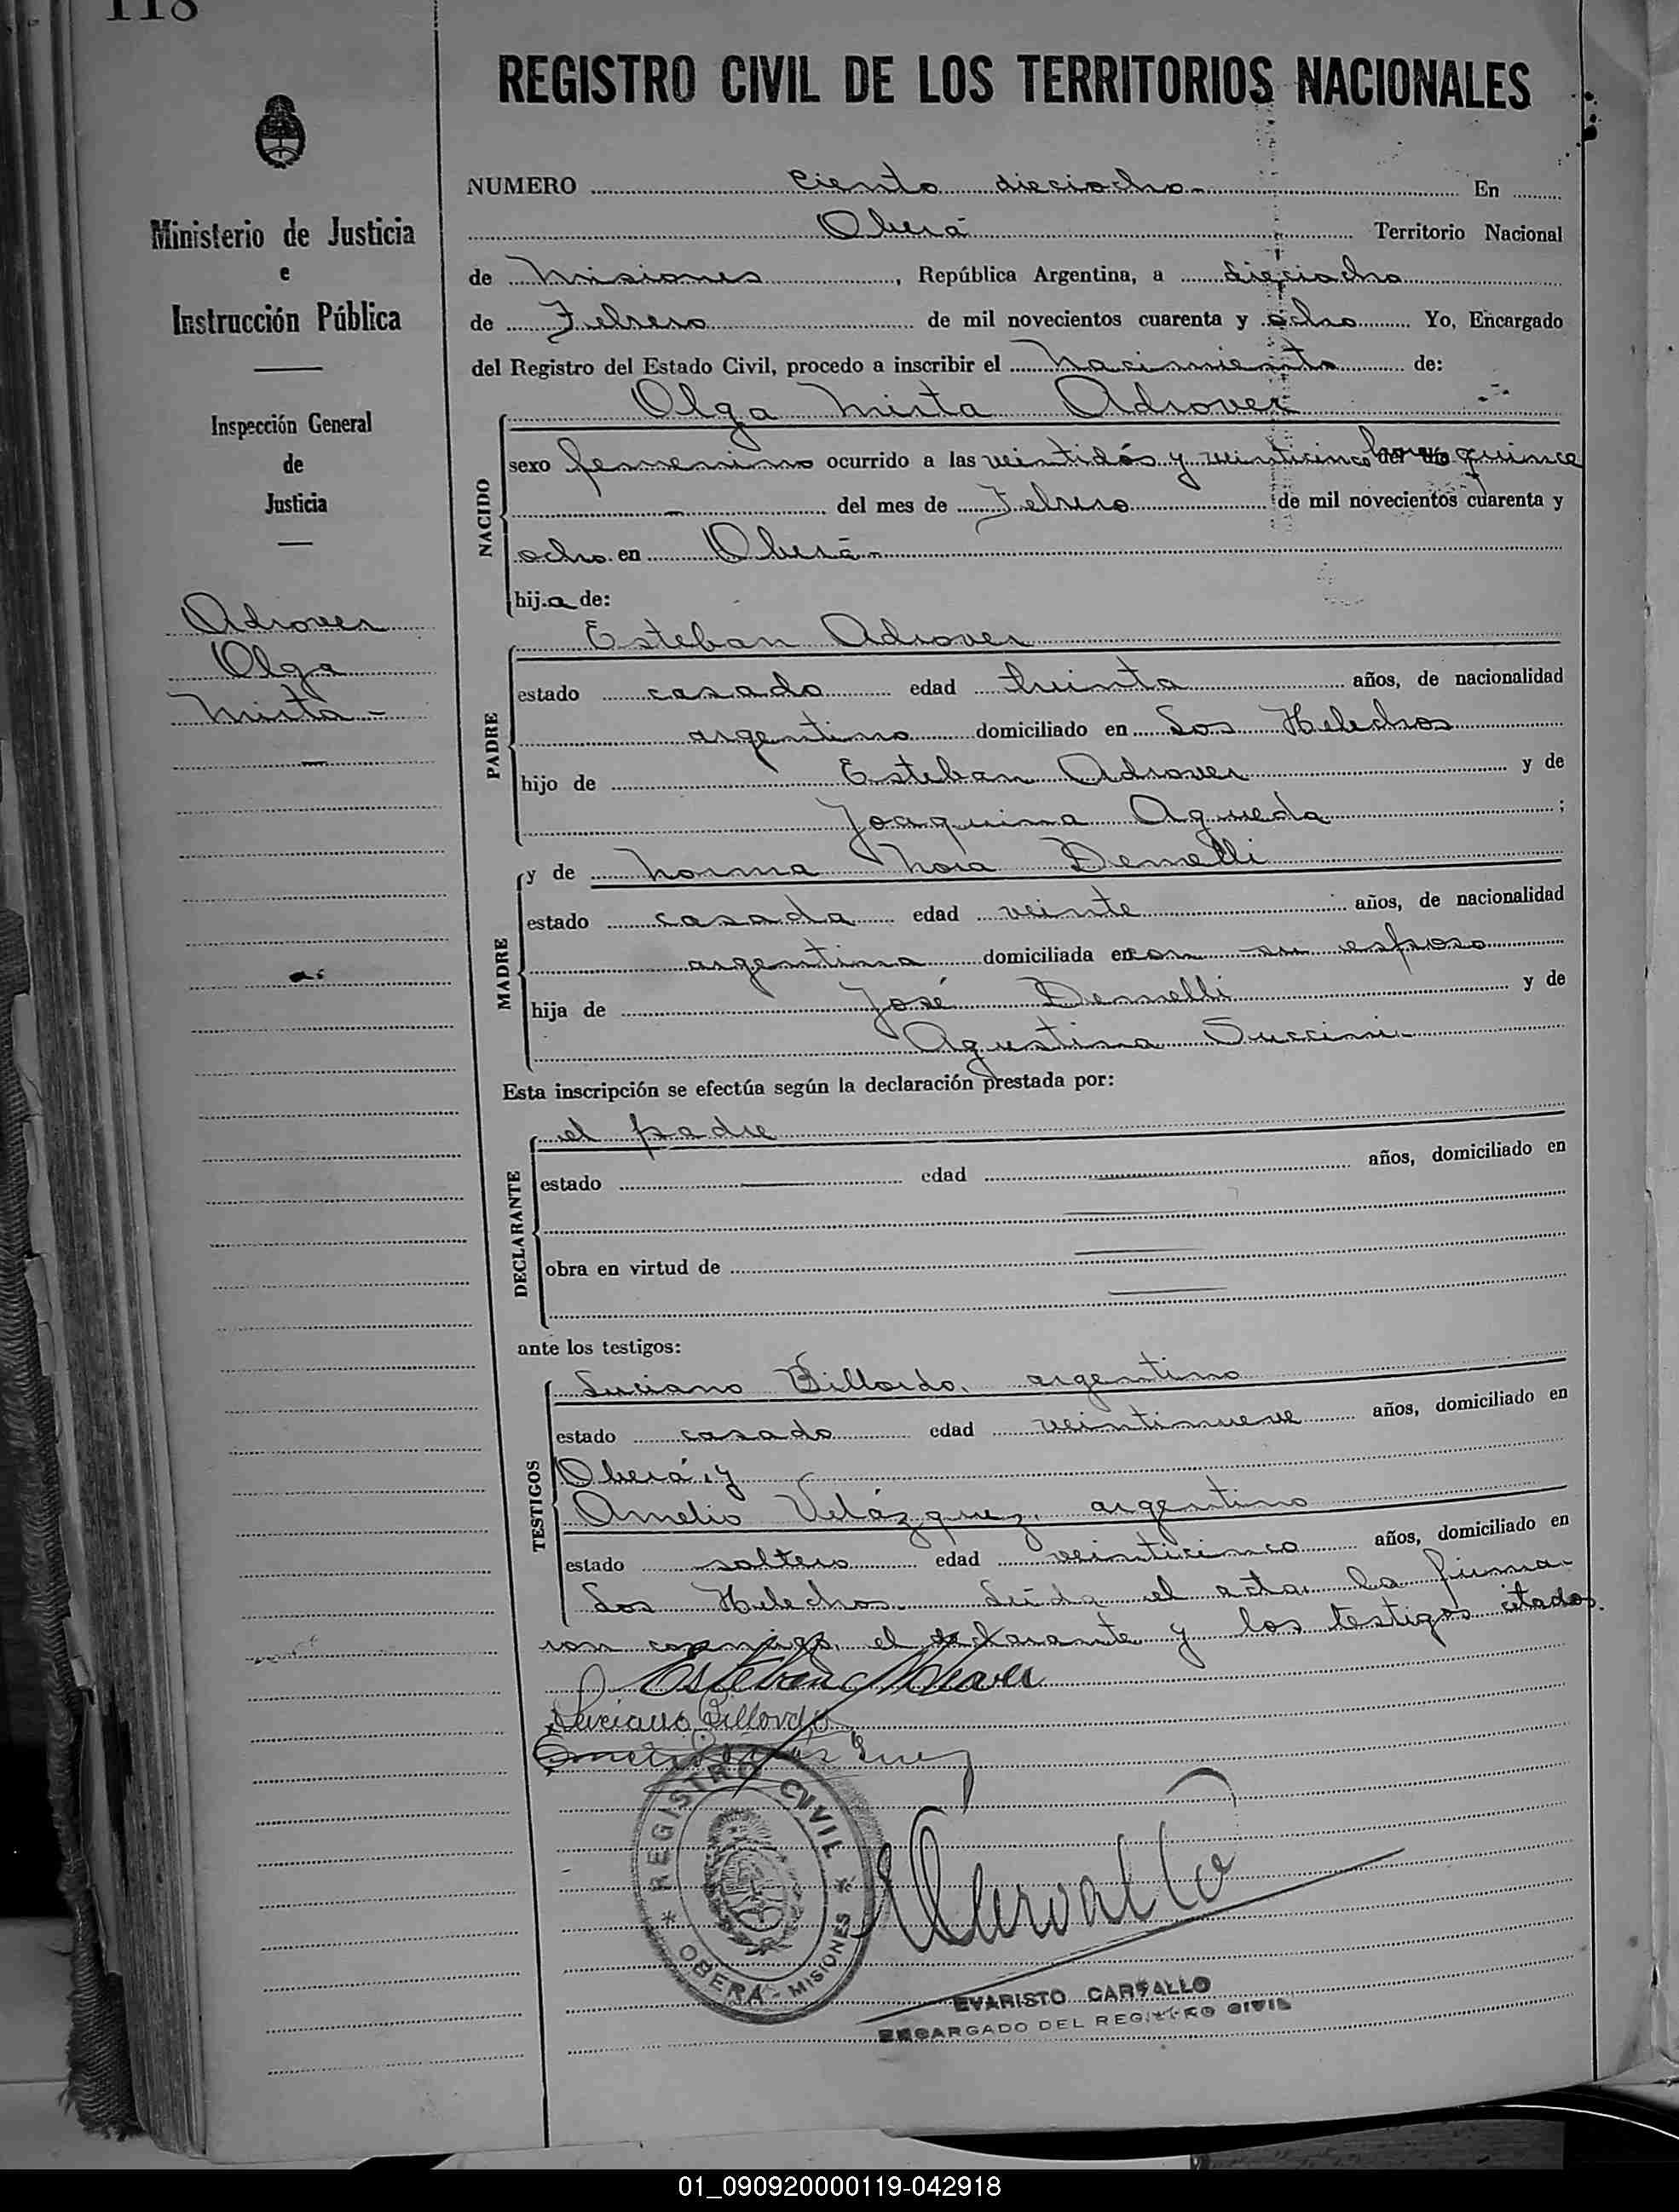 118
REGISTRO CIVIL DE LOS TERRITORIOS NACIONALES
Ministerio de Justicia
e
Instrucción Pública
Inspección General
de
Justicia
Adrover
Olga
Mirta -
NUMERO Ciento dieciocho - En
Oberá Territorio Nacional
de Misiones, República Argentina, a dieciocho
de Febrero de mil novecientos cuarenta y ocho Yo, Encargado
del Registro del Estado Civil, procedo a inscribir el nacimiento de:
Olga Mirta Adrover
NACIDO
sexo femenino ocurrido a las veintidós y veinticinco horas del día quince
- del mes de Febrero de mil novecientos cuarenta y
ocho en Oberá -
hija de:
PADRE
Esteban Adrover
estado casado edad treinta años, de nacionalidad
argentino domiciliado en Los Helechos
hijo de Esteban Adrover y de
Joaquina Agueda ;
MADRE
y de Norma Nora Demelli
estado casada edad veinte años, de nacionalidad
argentina domiciliada en con su esposo
hija de José Demelli y de
Agustina Succini -
Esta inscripción se efectúa según la declaración prestada por:
DECLARANTE
el padre
estado edad años, domiciliado en
obra en virtud de
ante los testigos:
TESTIGOS
Luciano Billordo, argentino
estado casado edad veintinueve años, domiciliado en
Oberá, y
Amelio Velázquez, argentino
estado soltero edad veinticinco años, domiciliado en
Los Helechos. Leída el acta la firma-
ron conmigo, el declarante y los testigos citados.
Esteban Adrover
Luciano Billordo
REGISTRO CIVIL
OBERÁ - MISIONES
EVARISTO CARVALLO
ENCARGADO DEL REGISTRO CIVIL
01_090920000119-042918